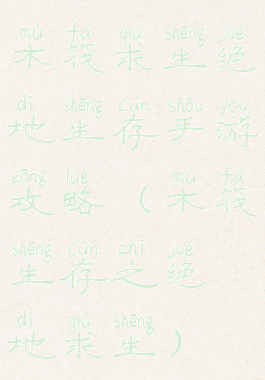 mù fá qiú shēng jué
木筏求生绝
dì shēng cún shǒu yóu
地生存手游
gōng lüè mù fá
攻略（木筏
shēng cún zhī jué
生存之绝
dì qiú shēng
地求生）